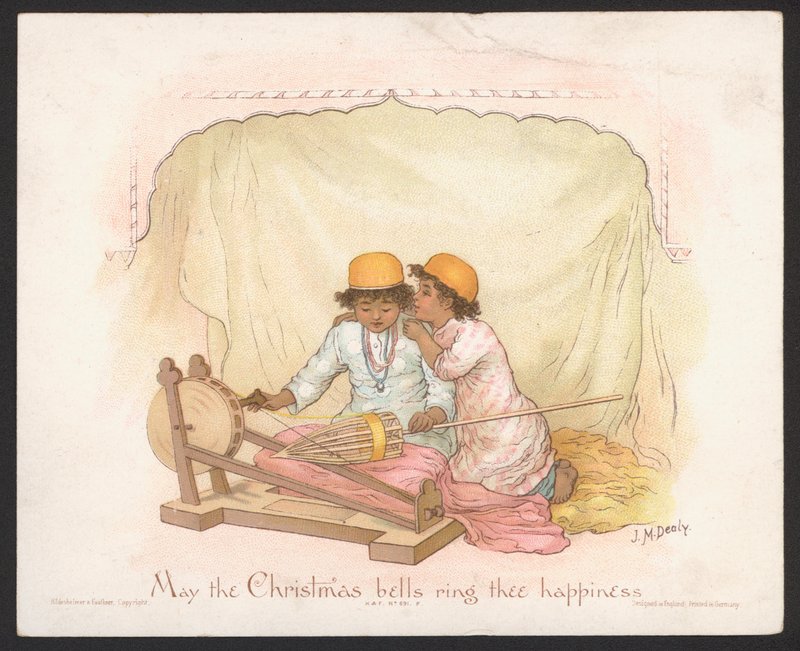 J. M. Dealy.
May the Christmas bells ring thee happiness
Hildesheimer & Faulkner, Copyright.
H & F. Nº 691. F
Designed in England; Printed in Germany.